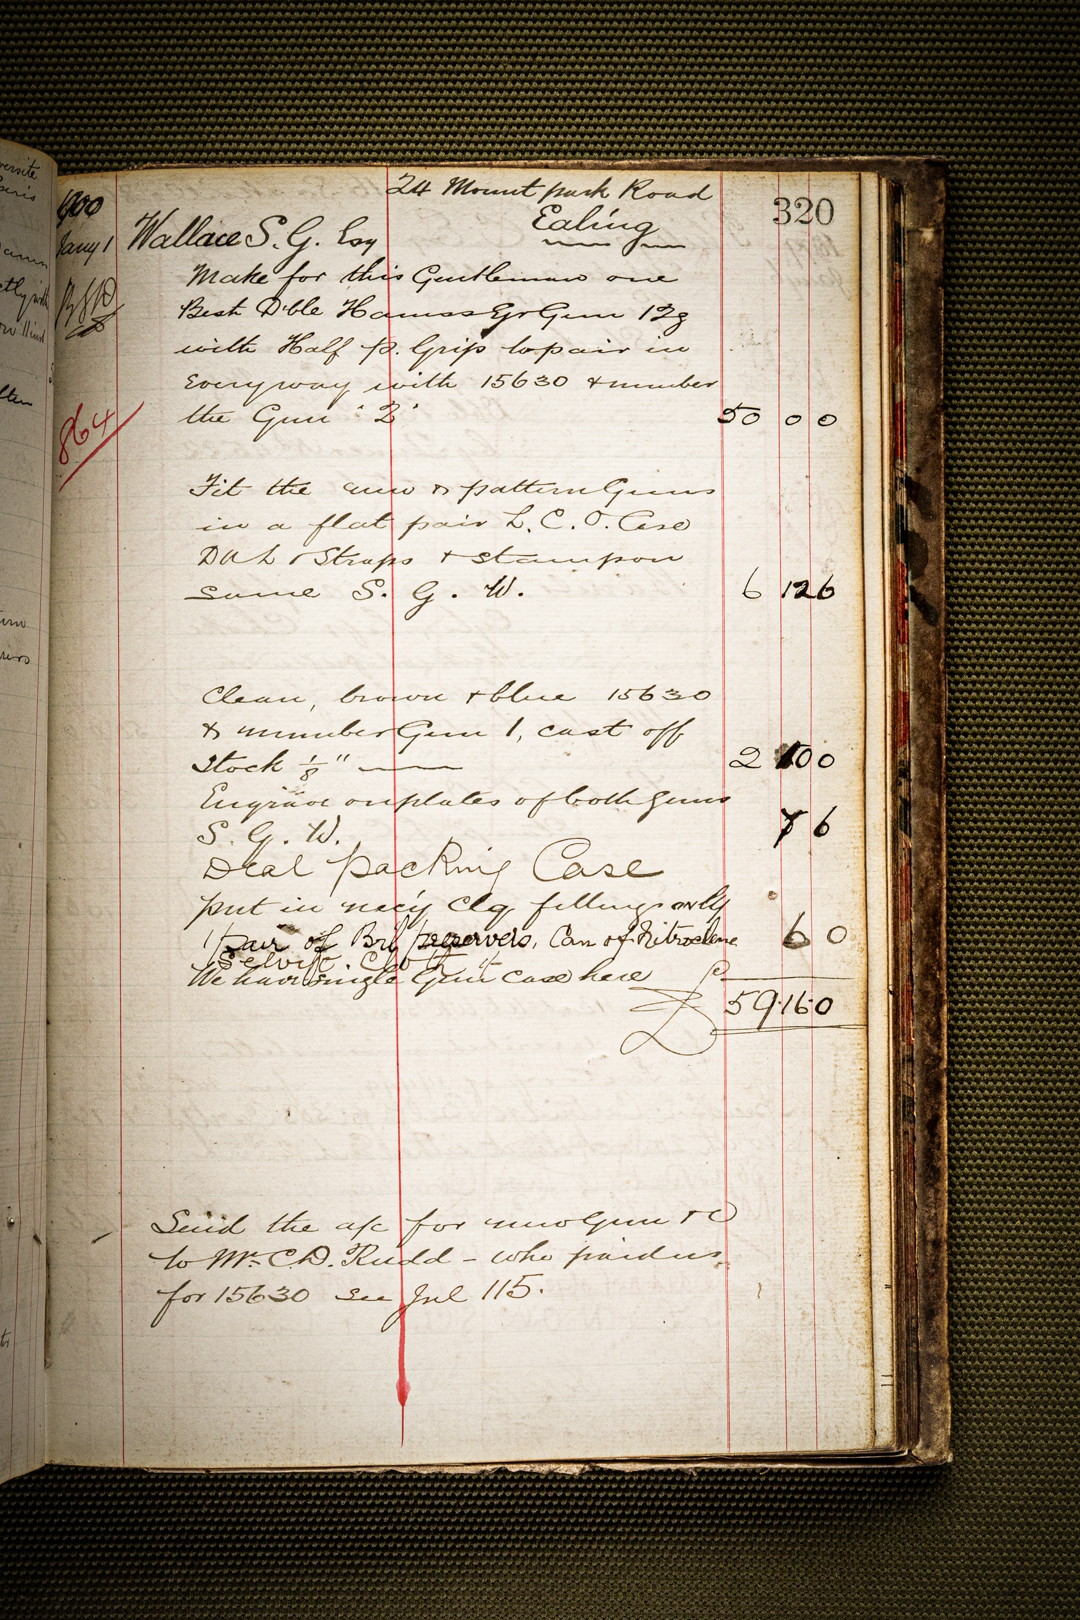 24 Mount park Road
320
1900
Jany 1 Wallace S. G. Esq Ealing
Make for this Gentleman one
Best Dble Hamss Ejr Gun 12g
with Half p. Grip to pair in
everyway with 15630 & number
the Gun "2" 50 0 0
864
Fit the new & pattern Guns
in a flat pair L. C. O. Case
& Straps & stamp on
same S. G. W. 6 12 6
Clean, brown & blue 15630
& number Gun 1, cast off
Stock 1/8" 2 10 0
Engrave on plates of both guns
S. G. W. 7 6
Deal packing Case
put in necy clg fillings only
1 pair of Brl preservers, Can of Nitroclene 6 0
Selvyt Cloth
We have single Gun case here
£ 59.16.0
Send the a/c for new Gun &c
to Mr. C.D. Rudd - who paid us
for 15630 see Jnl 115.